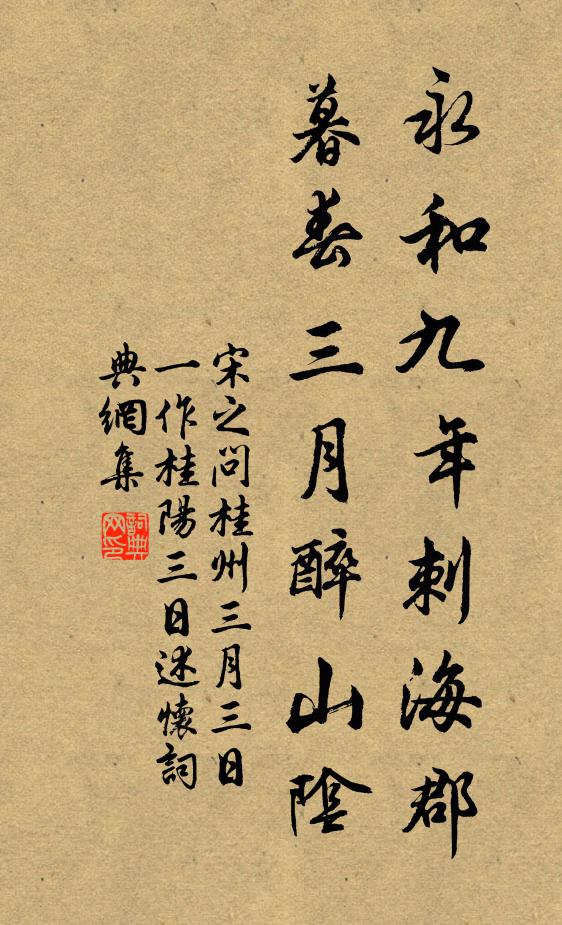 永和九年刺海郡
暮春三月醉山陰
宋之问桂州三月三日
一作桂陽三日述懷詞
典網集
詞典
网印